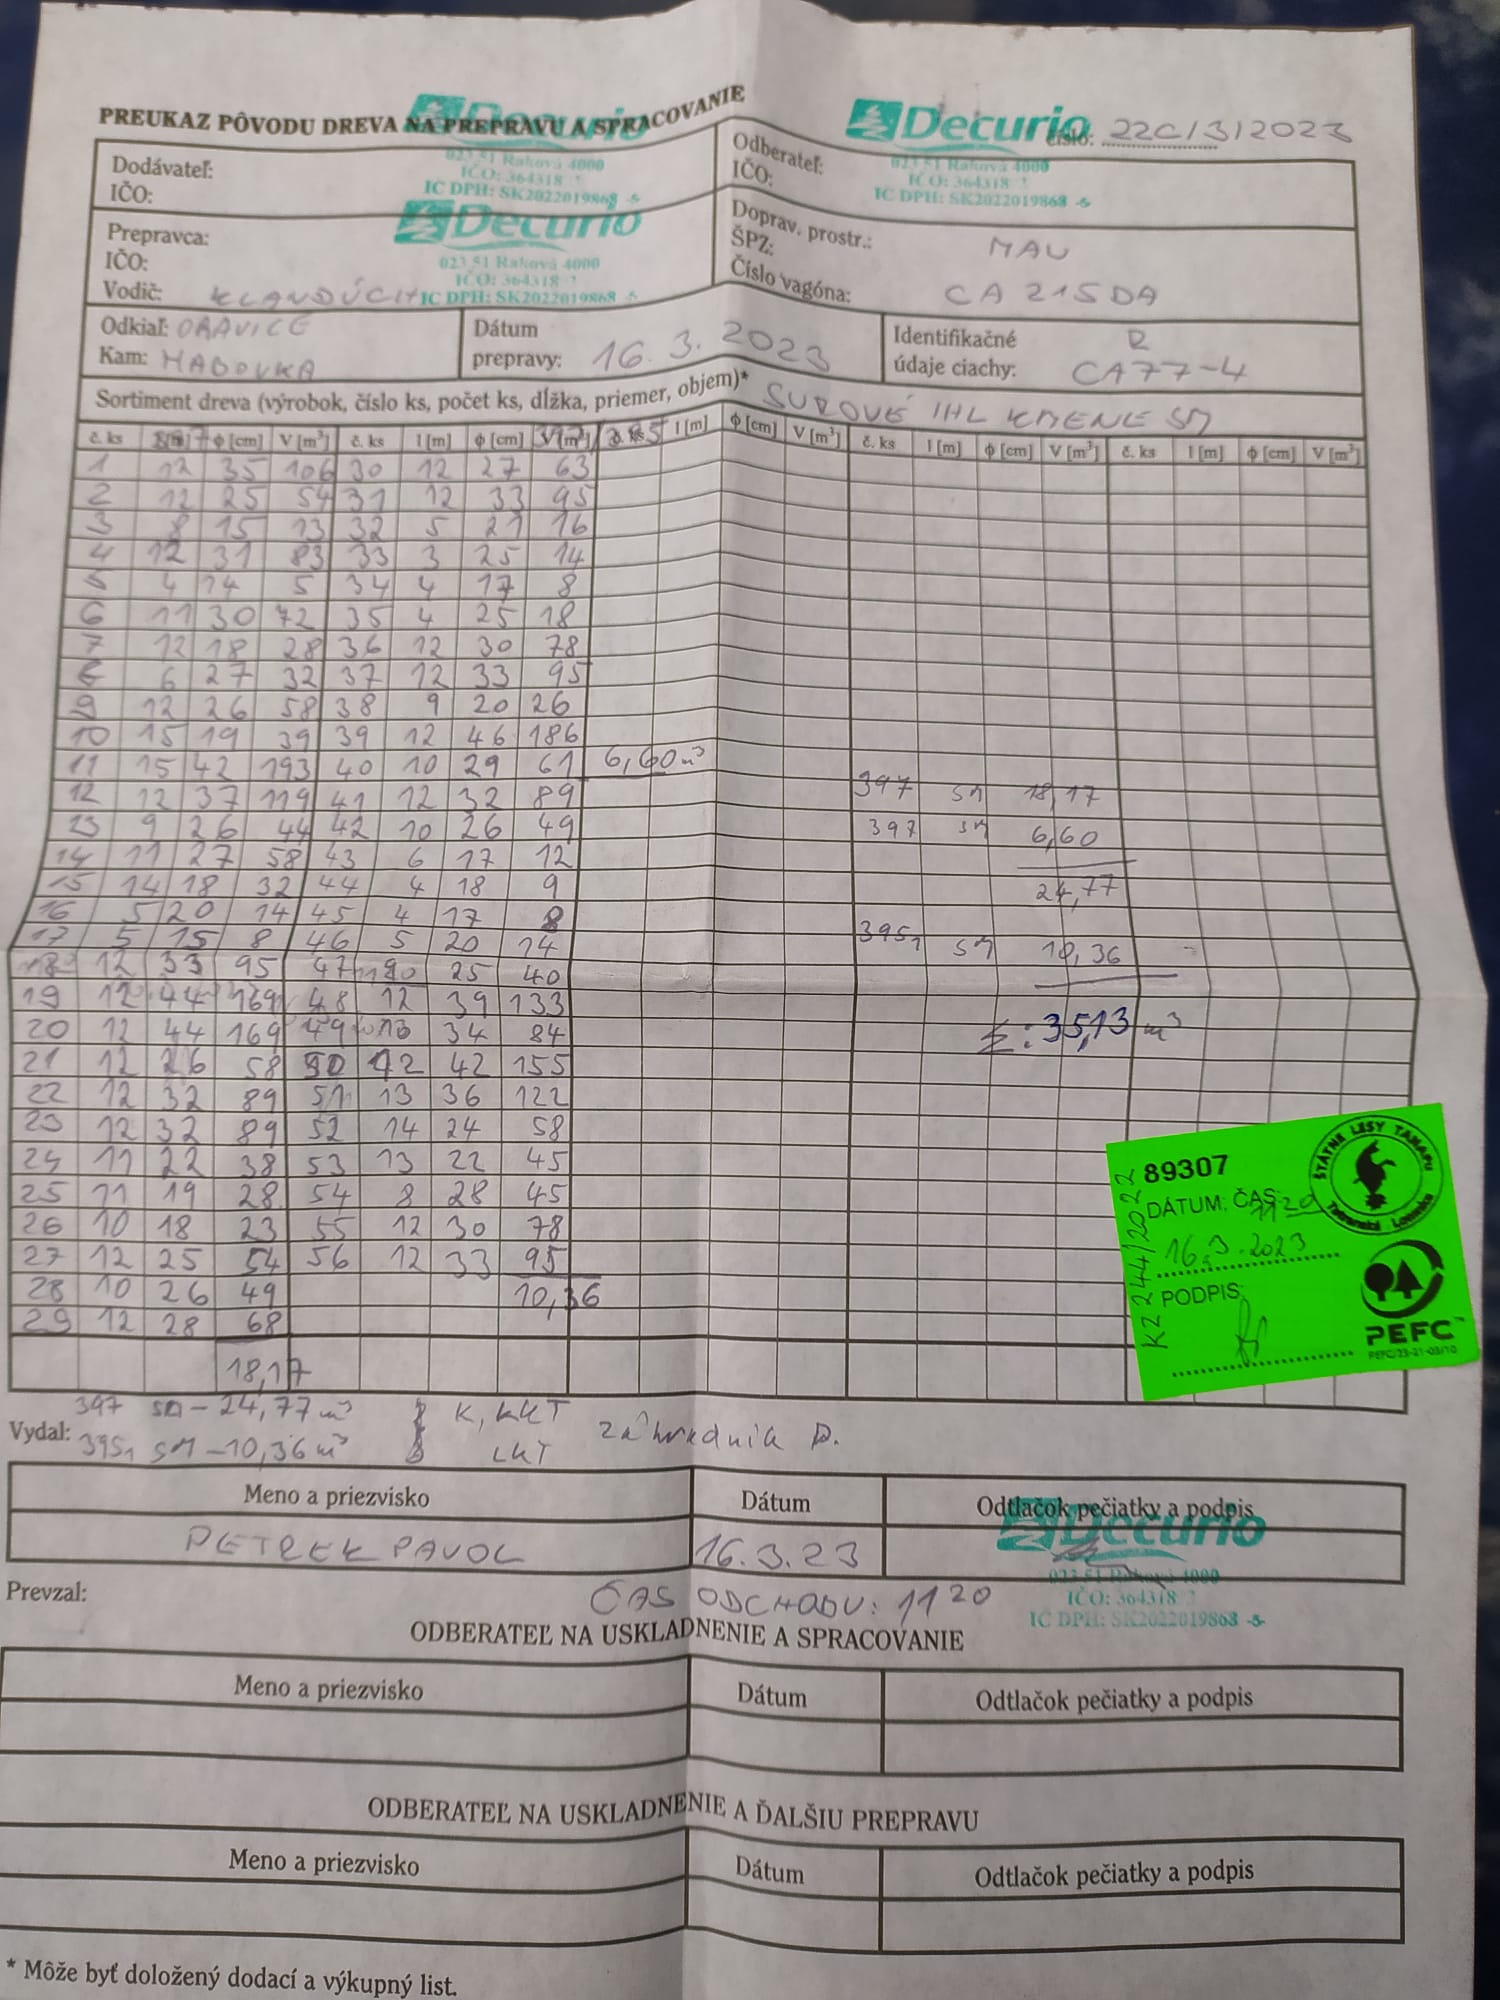 PREUKAZ PÔVODU DREVA NA PREPRAVU A SPRACOVANIE
Decurio
Decurio
číslo: 22C/3/2023
Dodávateľ:
IČO:
023 51 Raková 4000
IČO: 364318
IC DPH: SK2022019868 -5-
Odberateľ:
IČO:
023 51 Raková 4000
IČO: 364318
IC DPH: SK2022019868 -5-
Prepravca:
IČO:
Vodič:
Decurio
023 51 Raková 4000
IČO: 364318
IC DPH: SK2022019868 -5-
Doprav. prostr.: MAN
ŠPZ:
Číslo vagóna: CA 215DA
Odkiaľ: ORAVICE
Kam: HABOVKA
Dátum
prepravy: 16.3.2023
Identifikačné R
údaje ciachy: CA77-4
Sortiment dreva (výrobok, číslo ks, počet ks, dĺžka, priemer, objem)* SUROVÉ IHL KMENE SM
č. ks ϕ [cm] V [m³] č. ks l [m] ϕ [cm] V [m³] č. ks l [m] ϕ [cm] V [m³] č. ks l [m] ϕ [cm] V [m³] č. ks l [m] ϕ [cm] V [m³]
1 12 35 106 30 12 27 63
2 12 25 54 31 12 33 95
3 8 15 13 32 5 21 16
4 12 31 83 33 3 25 14
5 4 14 5 34 4 17 8
6 11 30 72 35 4 25 18
7 12 18 28 36 12 30 78
8 6 27 32 37 12 33 95
9 12 26 58 38 9 20 26
10 15 19 39 39 12 46 186
11 15 42 193 40 10 29 61 6,60 m³
12 12 37 119 41 12 32 89 397 SM 18,17
13 9 26 44 42 10 26 49 397 SM 6,60
14 11 27 58 43 6 17 12
15 14 18 32 44 4 18 9 24,77
16 5 20 14 45 4 17 8
17 5 15 8 46 5 20 14 3951 SM 10,36
18 12 33 95 47 25 40
19 12 44 169 48 12 39 133
20 12 44 169 49 34 84 Σ: 35,13 m³
21 12 26 58 50 12 42 155
22 12 32 89 51 13 36 122
23 12 32 89 52 14 24 58
24 11 22 38 53 13 22 45
25 11 19 28 54 8 28 45
26 10 18 23 55 12 30 78
27 12 25 54 56 12 33 95
28 10 26 49 10,36
29 12 28 68
18,17
KZ 244/2022
89307
DÁTUM: ČAS: 1120
16.3.2023
PODPIS:
ŠTÁTNE LESY TANAPU
Tatranská Lomnica
PEFC™
PEFC/23-21-03/10
397 SM - 24,77 m³ K, KKT
Vydal: 3951 SM - 10,36 m³ LKT záhradník P.
Meno a priezvisko Dátum Odtlačok pečiatky a podpis
PETREK PAVOL 16.3.23
Decurio
023 51 Raková 4000
IČO: 364318
IC DPH: SK2022019868 -5-
Prevzal: ČAS ODCHODU: 11²⁰
ODBERATEĽ NA USKLADNENIE A SPRACOVANIE
Meno a priezvisko Dátum Odtlačok pečiatky a podpis
ODBERATEĽ NA USKLADNENIE A ĎALŠIU PREPRAVU
Meno a priezvisko Dátum Odtlačok pečiatky a podpis
* Môže byť doložený dodací a výkupný list.